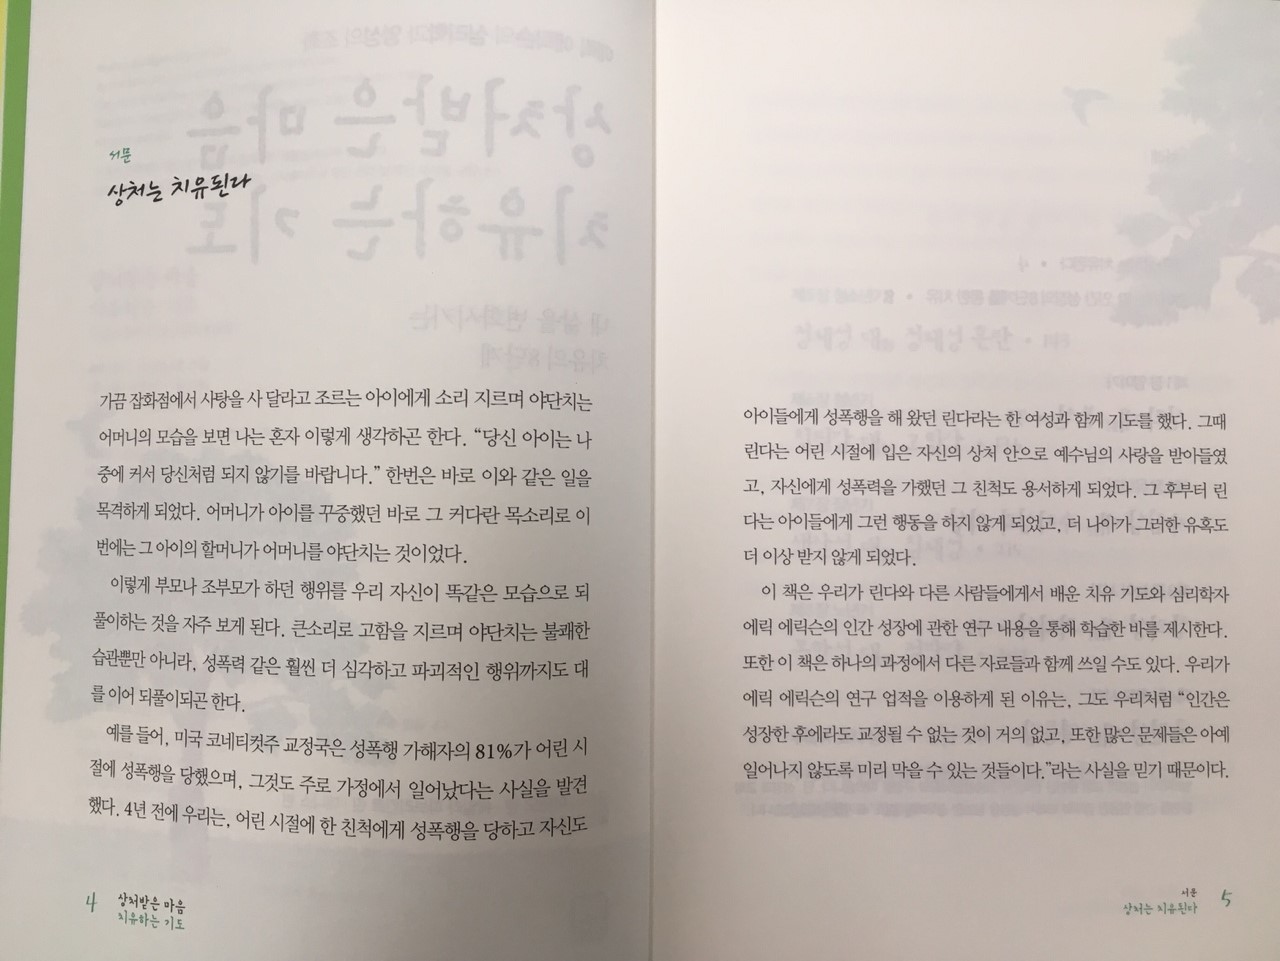 서문
상처는 치유된다
가끔 잡화점에서 사탕을 사 달라고 조르는 아이에게 소리 지르며 야단치는
어머니의 모습을 보면 나는 혼자 이렇게 생각하곤 한다. “당신 아이는 나
중에 커서 당신처럼 되지 않기를 바랍니다.” 한번은 바로 이와 같은 일을
목격하게 되었다. 어머니가 아이를 꾸중했던 바로 그 커다란 목소리로 이
번에는 그 아이의 할머니가 어머니를 야단치는 것이었다.
이렇게 부모나 조부모가 하던 행위를 우리 자신이 똑같은 모습으로 되
풀이하는 것을 자주 보게 된다. 큰소리로 고함을 지르며 야단치는 불쾌한
습관뿐만 아니라, 성폭력 같은 훨씬 더 심각하고 파괴적인 행위까지도 대
를 이어 되풀이되곤 한다.
예를 들어, 미국 코네티컷주 교정국은 성폭행 가해자의 81%가 어린 시
절에 성폭행을 당했으며, 그것도 주로 가정에서 일어났다는 사실을 발견
했다. 4년 전에 우리는, 어린 시절에 한 친척에게 성폭행을 당하고 자신도
4
상처받은 마음
치유하는 기도
아이들에게 성폭행을 해 왔던 린다라는 한 여성과 함께 기도를 했다. 그때
린다는 어린 시절에 입은 자신의 상처 안으로 예수님의 사랑을 받아들였
고, 자신에게 성폭력을 가했던 그 친척도 용서하게 되었다. 그 후부터 린
다는 아이들에게 그런 행동을 하지 않게 되었고, 더 나아가 그러한 유혹도
더 이상 받지 않게 되었다.
이 책은 우리가 린다와 다른 사람들에게서 배운 치유 기도와 심리학자
에릭 에릭슨의 인간 성장에 관한 연구 내용을 통해 학습한 바를 제시한다.
또한 이 책은 하나의 과정에서 다른 자료들과 함께 쓰일 수도 있다. 우리가
에릭 에릭슨의 연구 업적을 이용하게 된 이유는, 그도 우리처럼 “인간은
성장한 후에라도 교정될 수 없는 것이 거의 없고, 또한 많은 문제들은 아예
일어나지 않도록 미리 막을 수 있는 것들이다.”라는 사실을 믿기 때문이다.
서문
상처는 치유된다
5